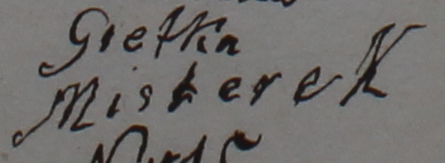 Gretka
Misterek